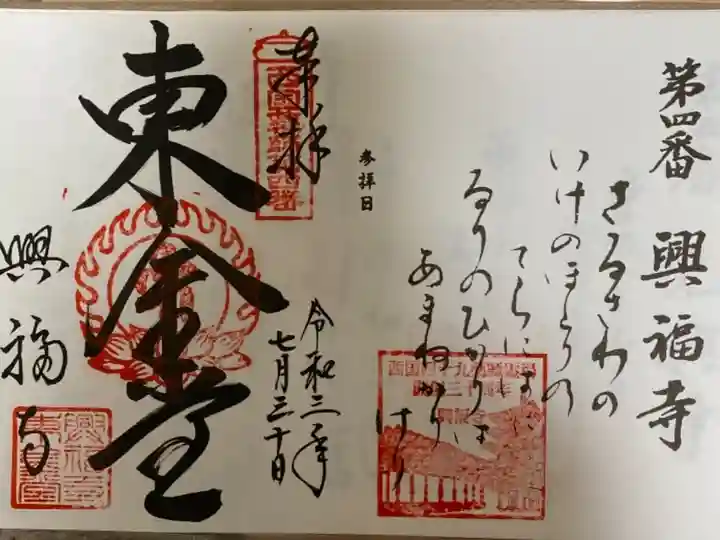 第四番 興福寺
さるさわの
いけのほとりの
てらに
るりのひかりは
あまねかり
けり
参拝日
奉拝
西國薬師第四番
東金堂
令和三年
七月三十日
興福寺